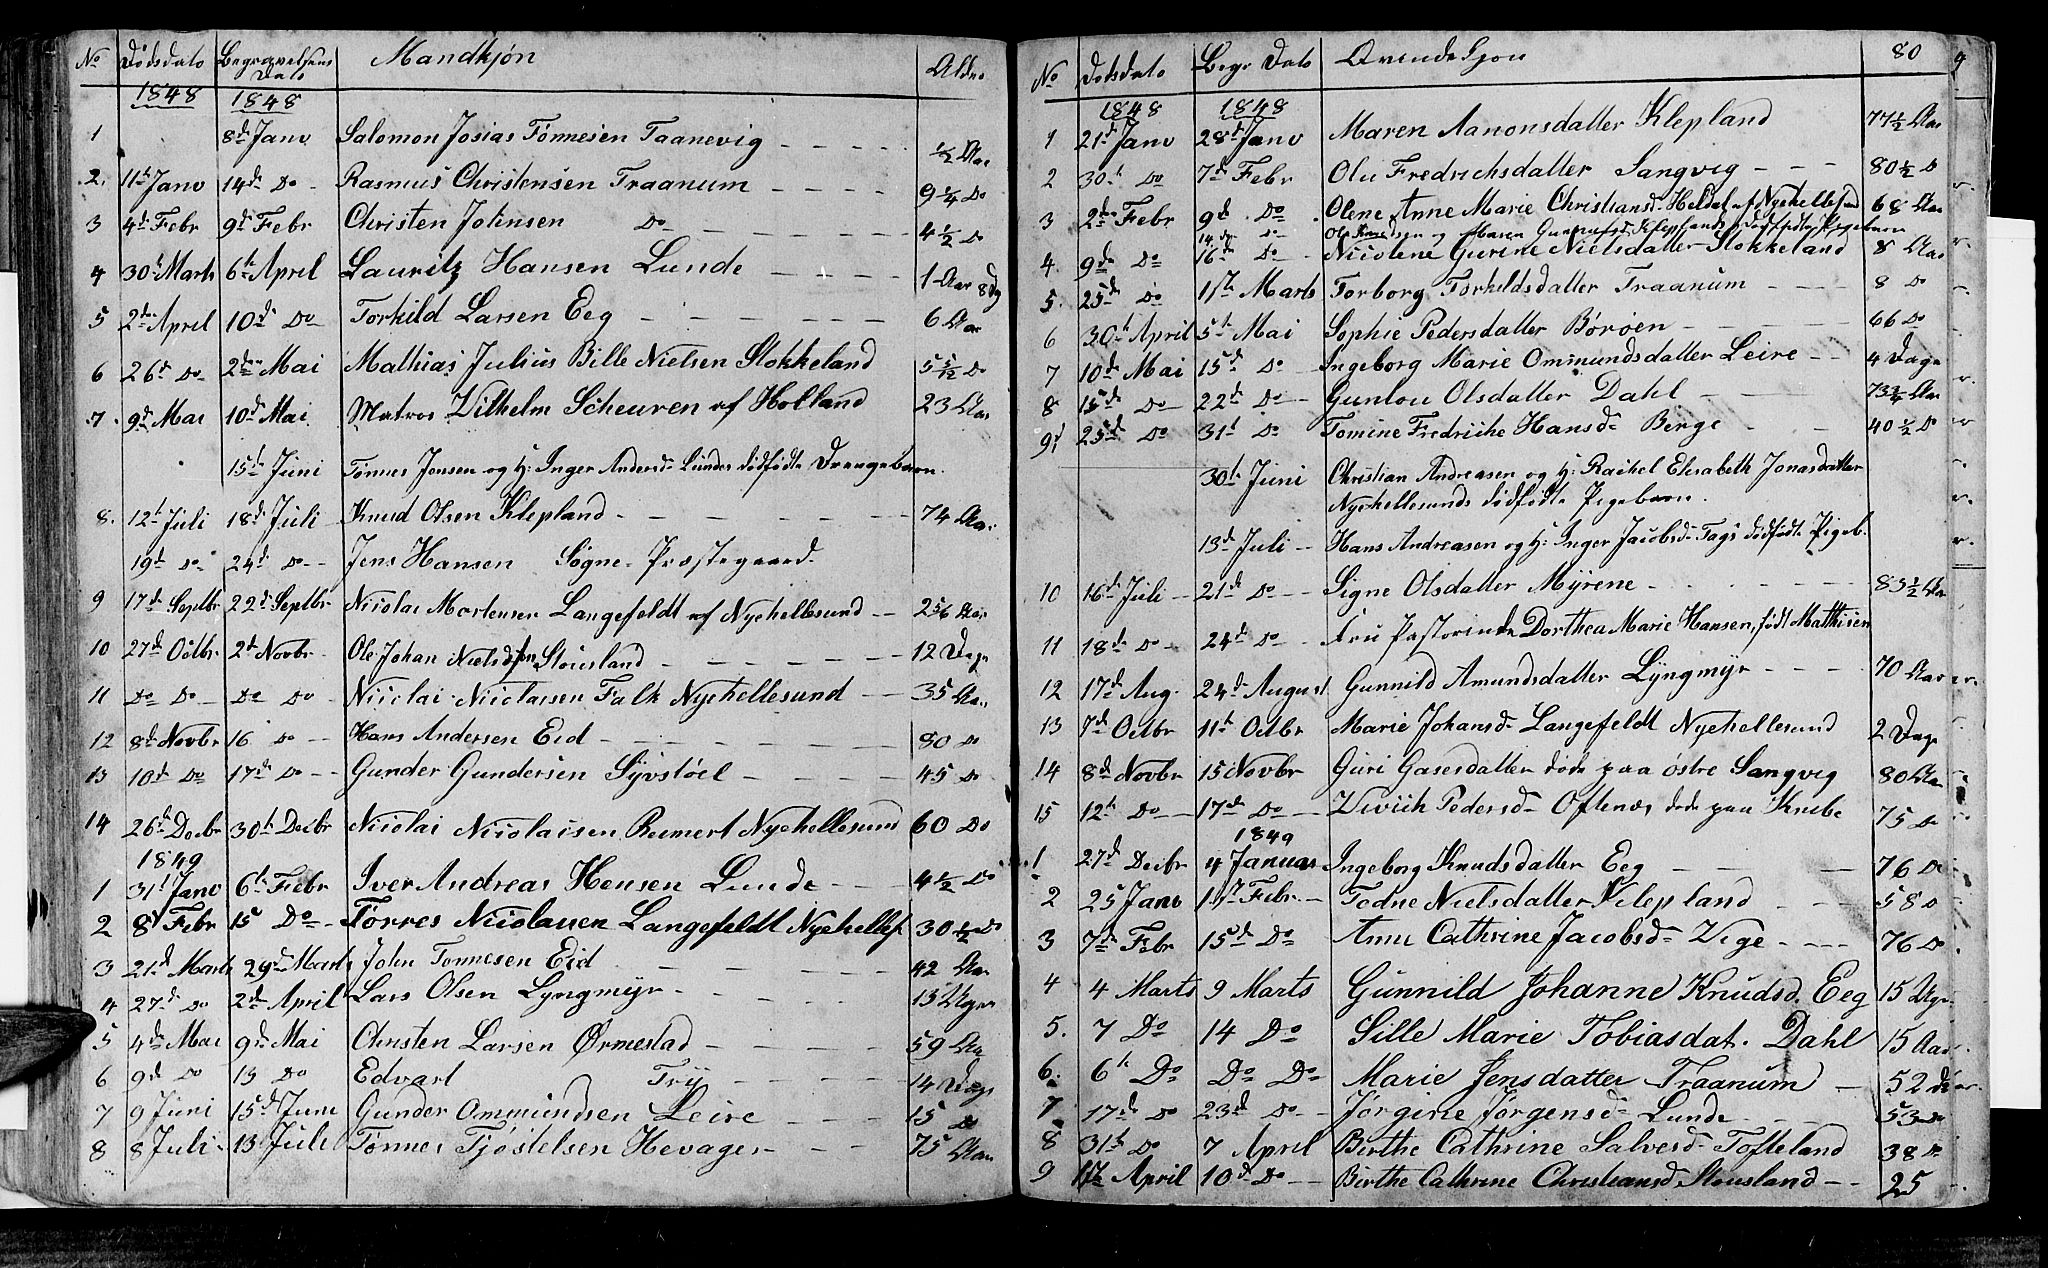 No Dødsdato Begravelsens Dato Mandkjøn Alder
1848 1848
1 8d Janv Salomon Josias Tønnesen Taanevig - - - - - ½ Aar
2. 11t Janv 14d Do - Rasmus Christensen Traanum - - - - 9¼ Do
3 4d Febr 9d Febr Christen Johnsen Do - - - - 4½ Do
4 30t Marts 6t April Lauritz Hansen Lunde - - - - 1 Aar 8 Dg
5 2den April 10d Do Torkild Larsen Eeg - - - - - 6 Aar
6 26d Do 2den Mai Mathias Julius Bille Nielsen Stokkeland 5 5/12 Do
7. 9d Mai 10d Mai Matros Vilhelm Scheuren af Holland 23 Aar
15d Juni Tønnes Jensen og H: Inger Andersd. Lundes dødfødte Drengebarn.
8. 12t Juli 18d Juli Knud Olsen Klepland - - - - 74 Aar
19d Do 24d Do - - Jens Hansen Søgne Præstegaard.
9 17d Septbr 22d Septbr Nicolai Mortensen Langefeldt af Nyehellesund - - Aar
10 27d Octbr 2d Novbr Ole Johan Nielsen Stousland - - - - 12 Dage
11 Do Do Do Do Nicolai Nicolaisen Falk Nyehellesund - - 35 Aar
12 8d Novbr 16 Do - Hans Andersen Eid - - - - - 80 Do
13 10d Do 17d Do - - Gunder Gundersen Syvstöel - - - - 45 Do
14 26d Decbr 30t Decbr Nicolai Nicolaisen Reimert Nyehellesund 60 Do
1849
1 31t Janv 6t Febr Iver Andreas Hansen Lunde - - - 4½ Do
2 8 Febr 15 Do - Torres Nicolaisen Langefeldt Nyehelles. 30½ Do
3 21d Marts 29d Marts John Tønnesen Eid - - - - 42 Aar
4 27d Do 2den April Lars Olsen Lyngmyr - - - - 13 Uger
5 4d Mai 9d Mai Christen Larsen Ørmestad - - - - 59 Aar
6 9d Do 13 Do Edvart Try - - - - 14 Dage
7 9 Juni 15d Juni Gunder Ommundsen Leire - - - - 15 Do
8 8 Juli - 13 Juli Tønnes Tjøstelsen Hevager - - - - 75 Aar
No Dødsdato Begr. Dato Qvindekjøn 80
1848 1848
1 21d Janv 28d Janv Maren Aanonsdatter Klepland 77½ Aar
2 30t Do 7d Febr Olu Fredrichsdatter Sangvig - - - 80½ D
3 2den Febr 9d Do - Olene Anne Marie Christiansd. Heldal af Nyehellesund 68 Aar
14 Do Ole Knudsen og Maren Gunnufsd. Kleplands dødfødte Pigebarn
4. 9d Do 16d Do - Nicolene Gurine Nielsdatter Stokkeland 8 Aar
5. 25d Do 11t Marts Torborg Torkildsdatter Traanum - - - 8 D
6 30t April 5t Mai Sophie Pedersdatter Børøen - - - - 66 D
7 10d Mai 15d Do - Ingeborg Marie Ommundsdatter Leire - - 4 Dage
8 15d Do - 22d Do - Gunlou Olsdatter Dahl - - - 73¾ Aar
9 25d Do 31t Do Tomine Fredrikke Hansd. Berge - - - 40½ D
30t Juni Christian Andreasen og H: Rachel Elisabeth Jonasdatter
Nyehellesunds dødfødte Pigebarn.
13d Juli - Hans Andreasen og H: Inger Jacobsd. Tags dødfødte Pigeb.
10 16d Juli - 21d Do - Signe Olsdatter Myrene - - - - 83½ Aar
11 18d Do - 24d Do - Fru Pastorinde Dorthea Marie Hansen, født Mathisen
12 17d Aug. 24d August Gunnild Amundsdatter Lyngmyr - - - 70 Aar
13 7d Octbr 11t Octbr Marie Johansd. Langefeldt Nyehellesund 2 Dage
14 8d Novbr 15 Novbr Guri Gasesdatter døde paa Østre Sangvig 80 Aar
15 12t Do - 17d Do - - Vivich Pedersd. Oftenæs døde paa Knibe 75 D
1849
1 27d Decbr 4 Januar Ingeborg Knudsdatter Eeg - - - 76 D
2 25 Janv Febr. - Tedne Nielsdatter Klepland - - - 58 D
3 7d Febr 15d Do Anne Cathrine Jacobsd. Vige - - - - 76 D
4 4 Marts 9 Marts Gunnild Johanne Knudsd. Eeg 15 Uger
5. 7 Do 14 Do Sille Marie Tobiasdat. Dahl 15 Aar
6. 6t Do Do Do Marie Jensdatter Traanum - 52 Do
7 17d Do 23d Do - Jørgine Jørgensd. Lunde - - - 53 Do
8 31t Do 7 April Birthe Cathrine Salvesd. Tofteland 38 D
9 April 10d Do - - Birthe Cathrine Christiansd. Stousland - - 25